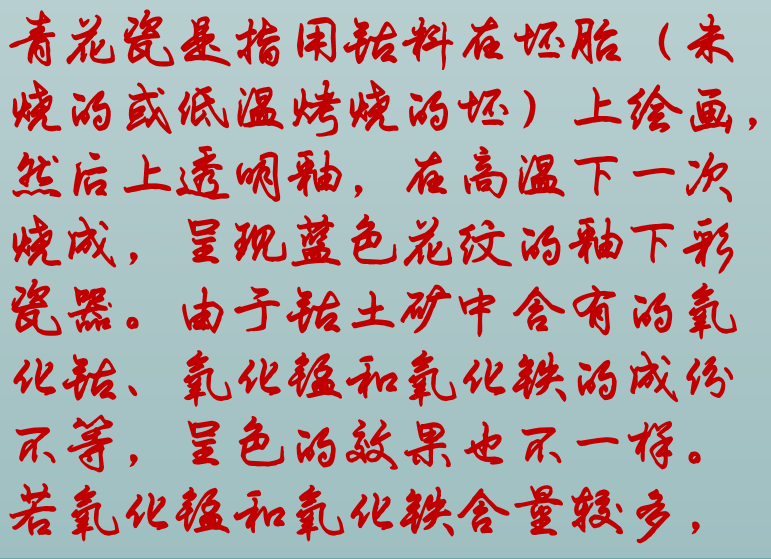 青花瓷是指用钴料在坯胎（未
烧的或低温烤烧的坯）上绘画，
然后上透明釉，在高温下一次
烧成，呈现蓝色花纹的釉下彩
瓷器。由于钴土矿中含有的氧
化钴、氧化锰和氧化铁的成份
不等，呈色的效果也不一样。
若氧化锰和氧化铁含量较多，